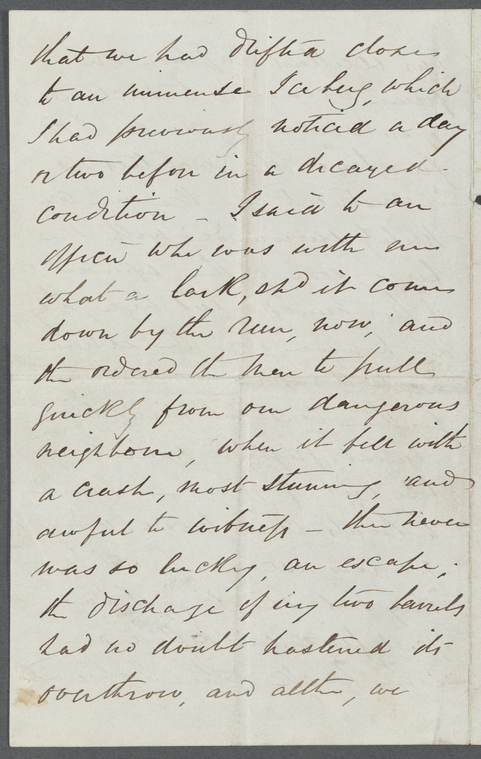 that we had drifted close
to an immense Iceberg, which
I had previously noticed a day
or two before in a decayed
condition – I said to an
officer who was with me
what a lark, shd it come
down by the run, now, and
then ordered the men to pull
quickly from our dangerous
neighbour, when it fell with
a crash, most stunning, and
awful to witness – there never
was so lucky, an escape,
the discharge of my two barrels
had no doubt hastened its
overthrow, and altho, we